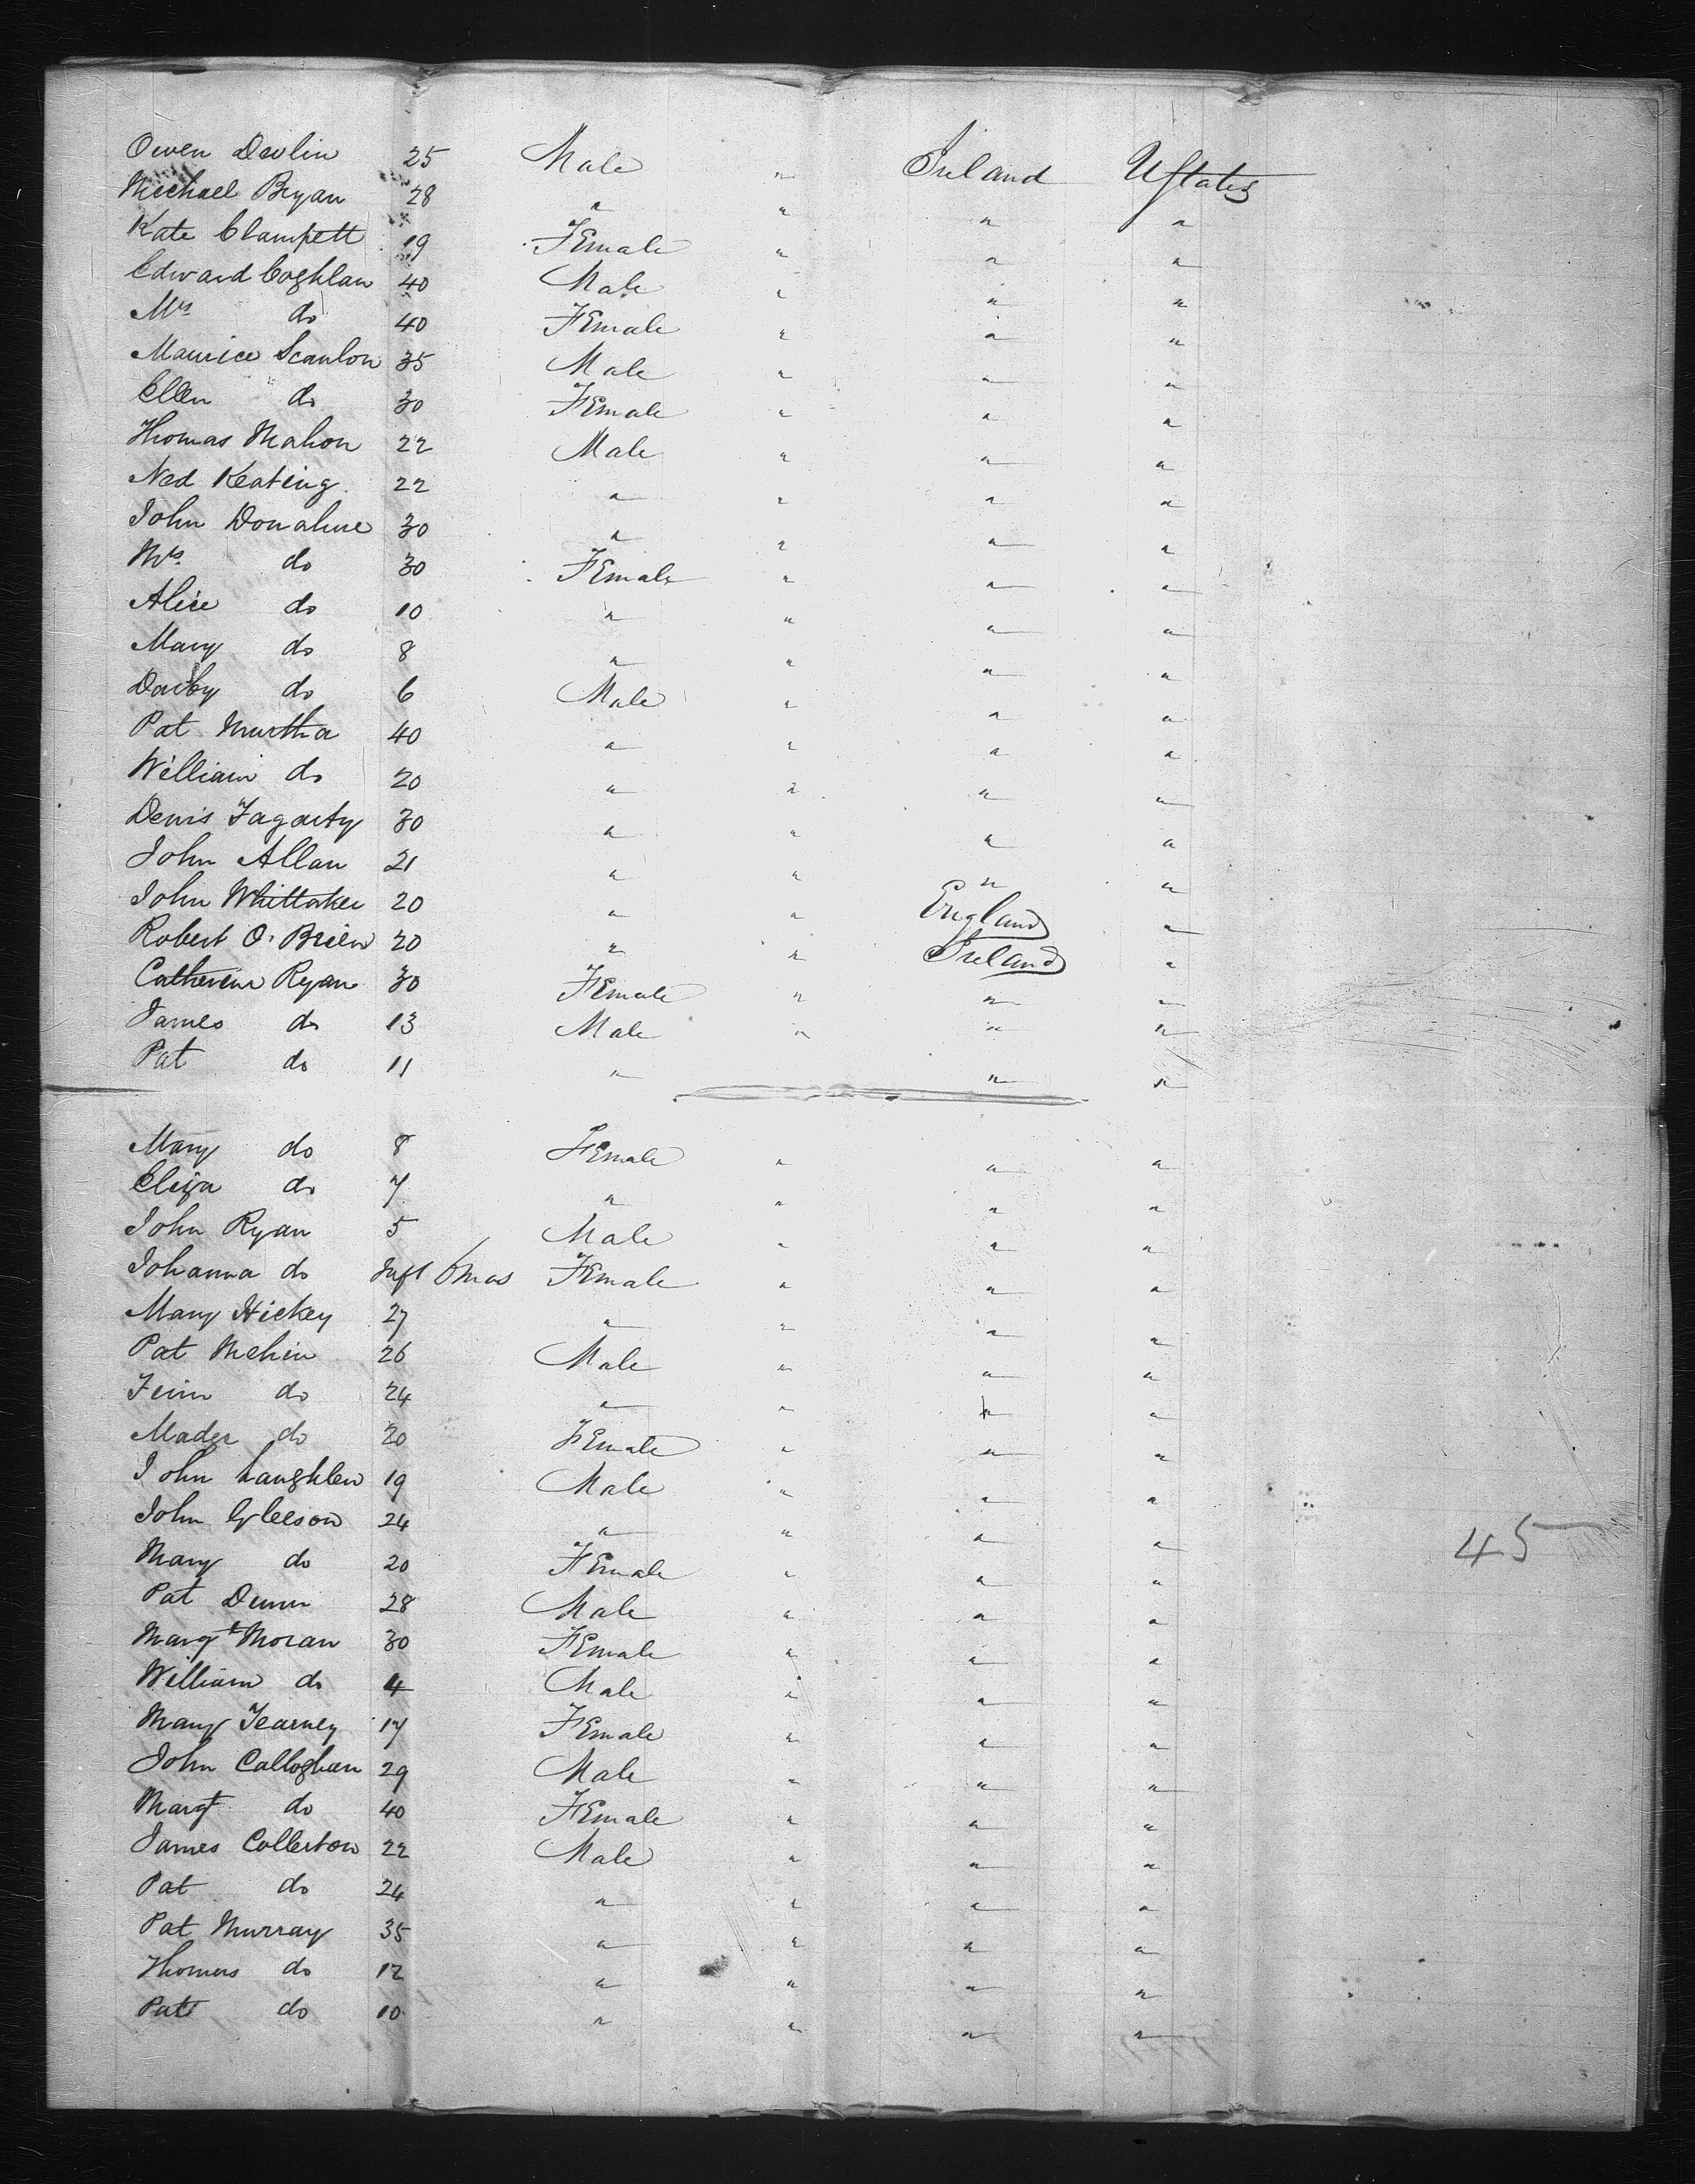 Owen Devlin 25 Male " Ireland UStates
Michael Bryan 28 " " " "
Kate Clampett 19 Female " " "
Edward Coghlan 40 Male " " "
Mrs do 40 Female " " "
Maurice Scanlon 35 Male " " "
Ellen do 30 Female " " "
Thomas Mahon 22 Male " " "
Ned Keating 22 " " " "
John Donahue 30 " " " "
Mrs do 30 Female " " "
Alice do 10 " " " "
Mary do 8 " " " "
Darby do 6 Male " " "
Pat Murtha 40 " " " "
William do 20 " " " "
Denis Fagarty 30 " " " "
John Allan 21 " " " "
John Whittaker 20 " " England "
Robert O'Brien 20 " " Ireland "
Catherine Ryan 30 Female " " "
James do 13 Male " " "
Pat do 11 " " " "
Mary do 8 Female " " "
Eliza do 7 " " " "
John Ryan 5 Male " " "
Johanna do Inft 6 mos Female " " "
Mary Hickey 27 " " " "
Pat Mehin 26 Male " " "
do 24 " " " "
do 20 Female " " "
John Laughlen 19 Male " " "
John Gleeson 24 " " " "
Mary do 20 Female " " "
Pat Dunn 28 Male " " "
Margt Moran 30 Female " " "
William do 4 Male " " "
Mary Fearney 17 Female " " "
John Calloghan 29 Male " " "
Margt do 40 Female " " "
James Collerton 22 Male " " "
Pat do 24 " " " "
Pat Murray 35 " " " "
Thomas do 12 " " " "
Pat do 10 " " " "
45